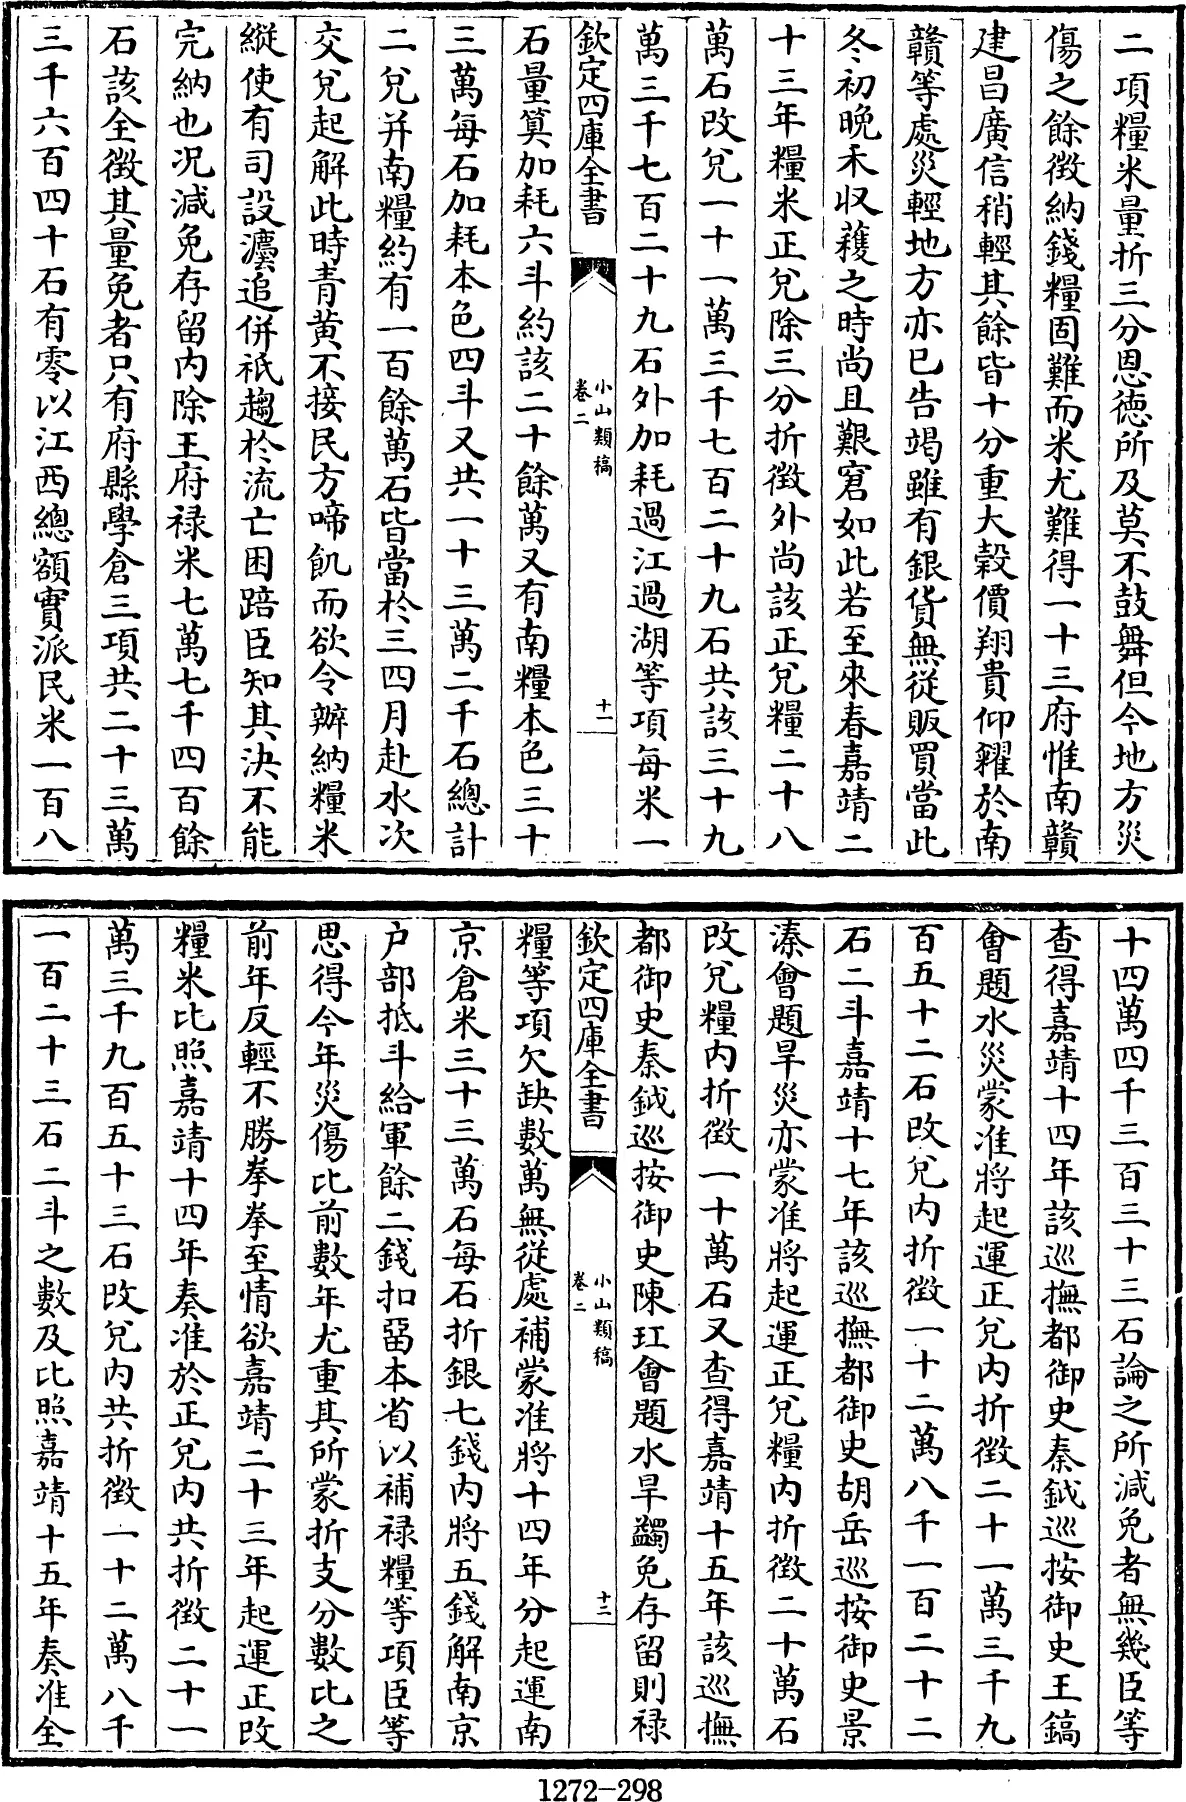 二項糧米量折三分恩德所及莫不鼓舞但今地方災
傷之餘徵納錢糧固難而米尤難得一十三府惟南贛
建昌廣信稍輕其餘皆十分重大穀價翔貴仰糴於南
贛等處災輕地方亦已告竭雖有銀貨無從販買當此
冬初晚禾收穫之時尚且艱窘如此若至來春嘉靖二
十三年糧米正兌除三分折徵外尚該正兌糧二十八
萬石改兌一十一萬三千七百二十九石共該三十九
萬三千七百二十九石外加耗過江過湖等項每米一
欽定四庫全書
小山類稿
卷二
十一
石量算加耗六斗約該二十餘萬又有南糧本色三十
三萬每石加耗本色四斗又共一十三萬二千石總計
二兌并南糧約有一百餘萬石皆當於三四月赴水次
交兌起解此時青黄不接民方啼飢而欲令辦納糧米
縱使有司設瀍追併祇趨於流亡困踣臣知其決不能
完納也况減免存留内除王府禄米七萬七千四百餘
石該全徵其量免者只有府縣學倉三項共二十三萬
三千六百四十石有零以江西總額實派民米一百八
十四萬四千三百三十三石論之所減免者無幾臣等
查得嘉靖十四年該巡撫都御史秦鉞巡按御史王鎬
會題水災蒙准將起運正兌内折徵二十一萬三千九
百五十二石改兌内折徵一十二萬八千一百二十二
石二斗嘉靖十七年該巡撫都御史胡岳巡按御史景
溱會題旱災亦蒙准將起運正兌糧内折徵二十萬石
改兌糧内折徵一十萬石又查得嘉靖十五年該巡撫
都御史秦鉞巡按御史陳玒會題水旱蠲免存留則禄
欽定四庫全書
小山類稿
卷二
十二
糧等項欠缺數萬無從處補蒙准將十四年分起運南
京倉米三十三萬石每石折銀七錢内將五錢解南京
户部抵斗給軍餘二錢扣留本省以補禄糧等項臣等
思得今年災傷比前數年尤重其所蒙折支分數比之
前年反輕不勝拳拳至情欲嘉靖二十三年起運正改
糧米比照嘉靖十四年奏准於正兌内共折徵二十一
萬三千九百五十三石改兌内共折徵一十二萬八千
一百二十三石二斗之數及比照嘉靖十五年奏准全
1272-298